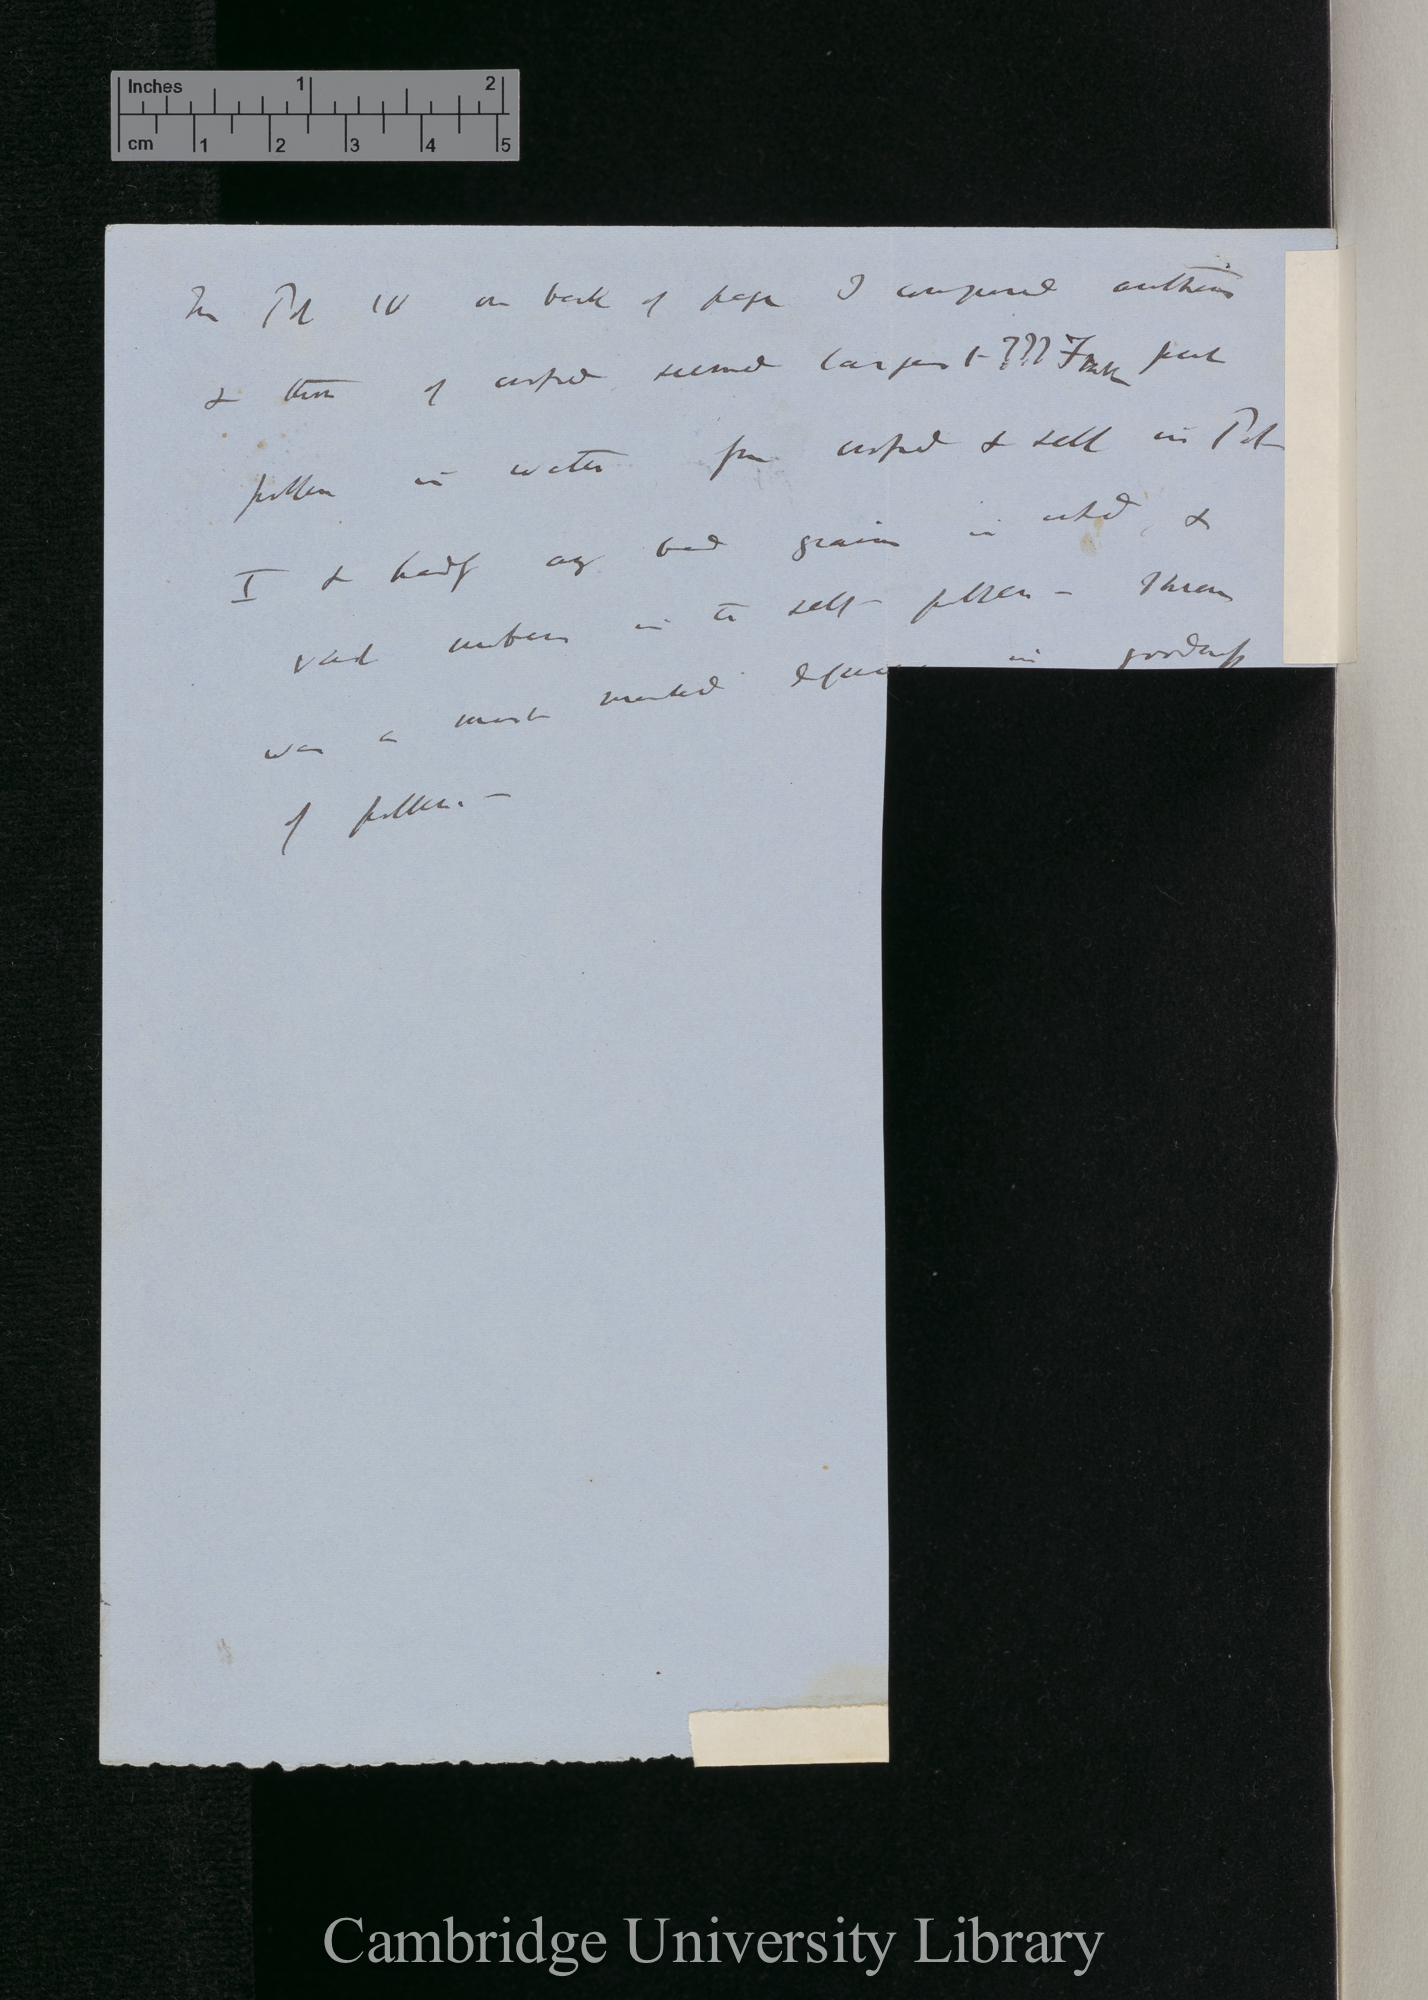 Inches 1 2
cm 1 2 3 4 5
In Pot IV on back of page I compared anthers
& those of crossed seemed largest ??? Frank put
pollen in water from crossed & self in Pot
I & hardly any bad grains in crossed, &
vast numbers in the self-pollen — There
was a most marked difference in goodness
of pollen. —
Cambridge University Library